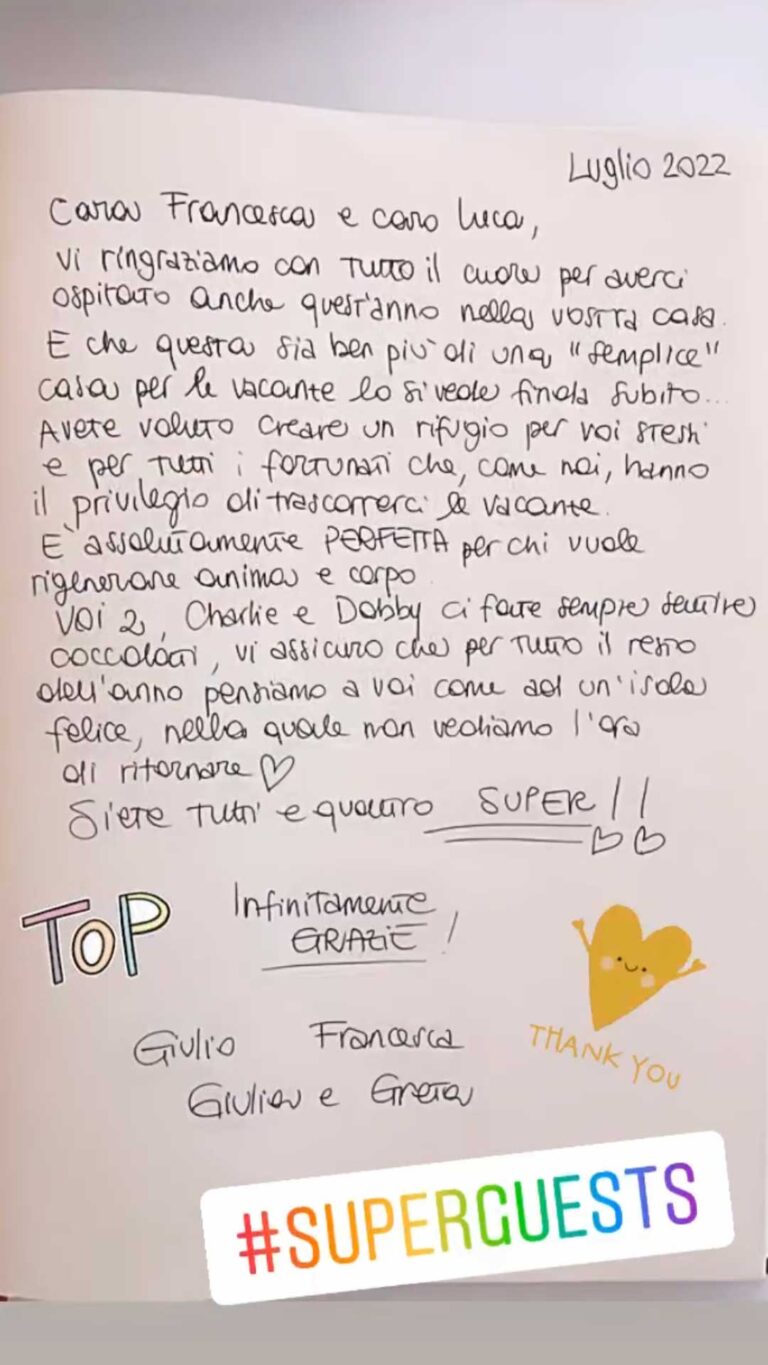 Luglio 2022
Cara Francesca e caro Luca,
vi ringraziamo con tutto il cuore per averci
ospitato anche quest'anno nella vostra casa.
E che questa sia ben più di una "semplice"
casa per le vacanze lo si vede fin da subito...
Avete voluto creare un rifugio per voi stessi
e per tutti i fortunati che, come noi, hanno
il privilegio di trascorrerci le vacanze.
E' assolutamente PERFETTA per chi vuole
rigenerare anima e corpo
Voi 2, Charlie e Dobby ci fate sempre sentire
coccolati, vi assicuro che per tutto il resto
dell'anno pensiamo a voi come ad un'isola
felice, nella quale non vediamo l'ora
di ritornare ♡
Siete tutti e quattro SUPER!!
♡♡
TOP
Infinitamente
GRAZIE!
THANK YOU
Giulio Francesca
Giulia e Greta
#SUPERGUESTS